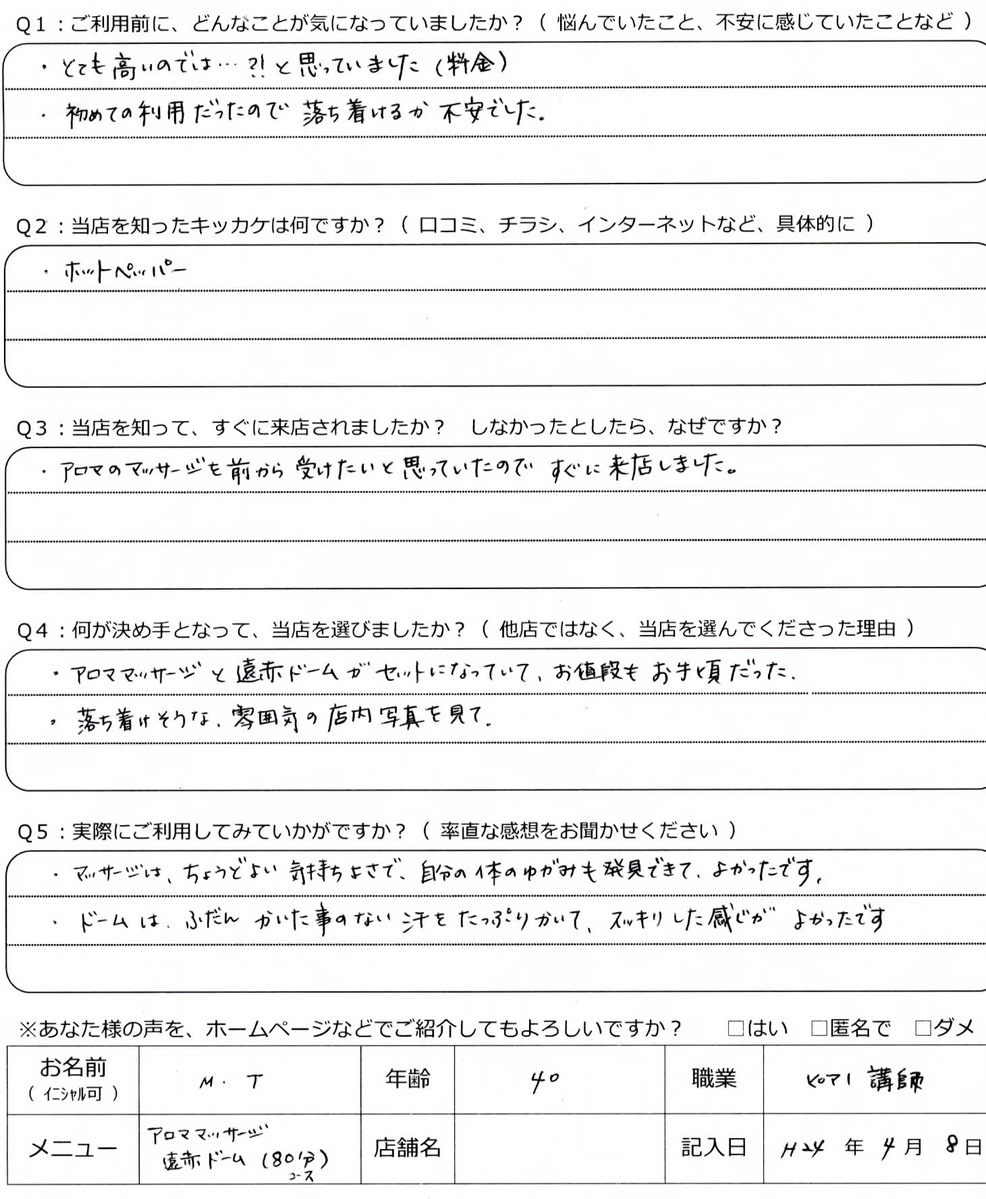 Q1：ご利用前に、どんなことが気になっていましたか？（ 悩んでいたこと、不安に感じていたことなど ）
・とても高いのでは…?!と思っていました（料金）
・初めての利用だったので 落ち着けるか 不安でした。
Q2：当店を知ったキッカケは何ですか？（ 口コミ、チラシ、インターネットなど、具体的に ）
・ホットペッパー
Q3：当店を知って、すぐに来店されましたか？　しなかったとしたら、なぜですか？
・アロマのマッサージを前から 受けたいと思っていたので すぐに来店しました。
Q4：何が決め手となって、当店を選びましたか？（ 他店ではなく、当店を選んでくださった理由 ）
・アロママッサージと遠赤ドームがセットになっていて、お値段も お手頃だった.
・落ち着けそうな、雰囲気の店内写真を見て.
Q5：実際にご利用してみていかがですか？（ 率直な感想をお聞かせください ）
・マッサージは、ちょうどよい 気持ちよさで、自分の体のゆがみも発見できて、よかったです.
・ドームは、ふだん かいた事のない 汗をたっぷりかいて、スッキリした感じが よかったです
※あなた様の声を、ホームページなどでご紹介してもよろしいですか？　□はい　□匿名で　□ダメ
お名前 M.T 年齢 40 職業 ピアノ講師
（ ｲﾆｼｬﾙ可 ）
メニュー アロママッサージ 店舗名 記入日 H24 年 4 月 8 日
遠赤ドーム（80分）
コース